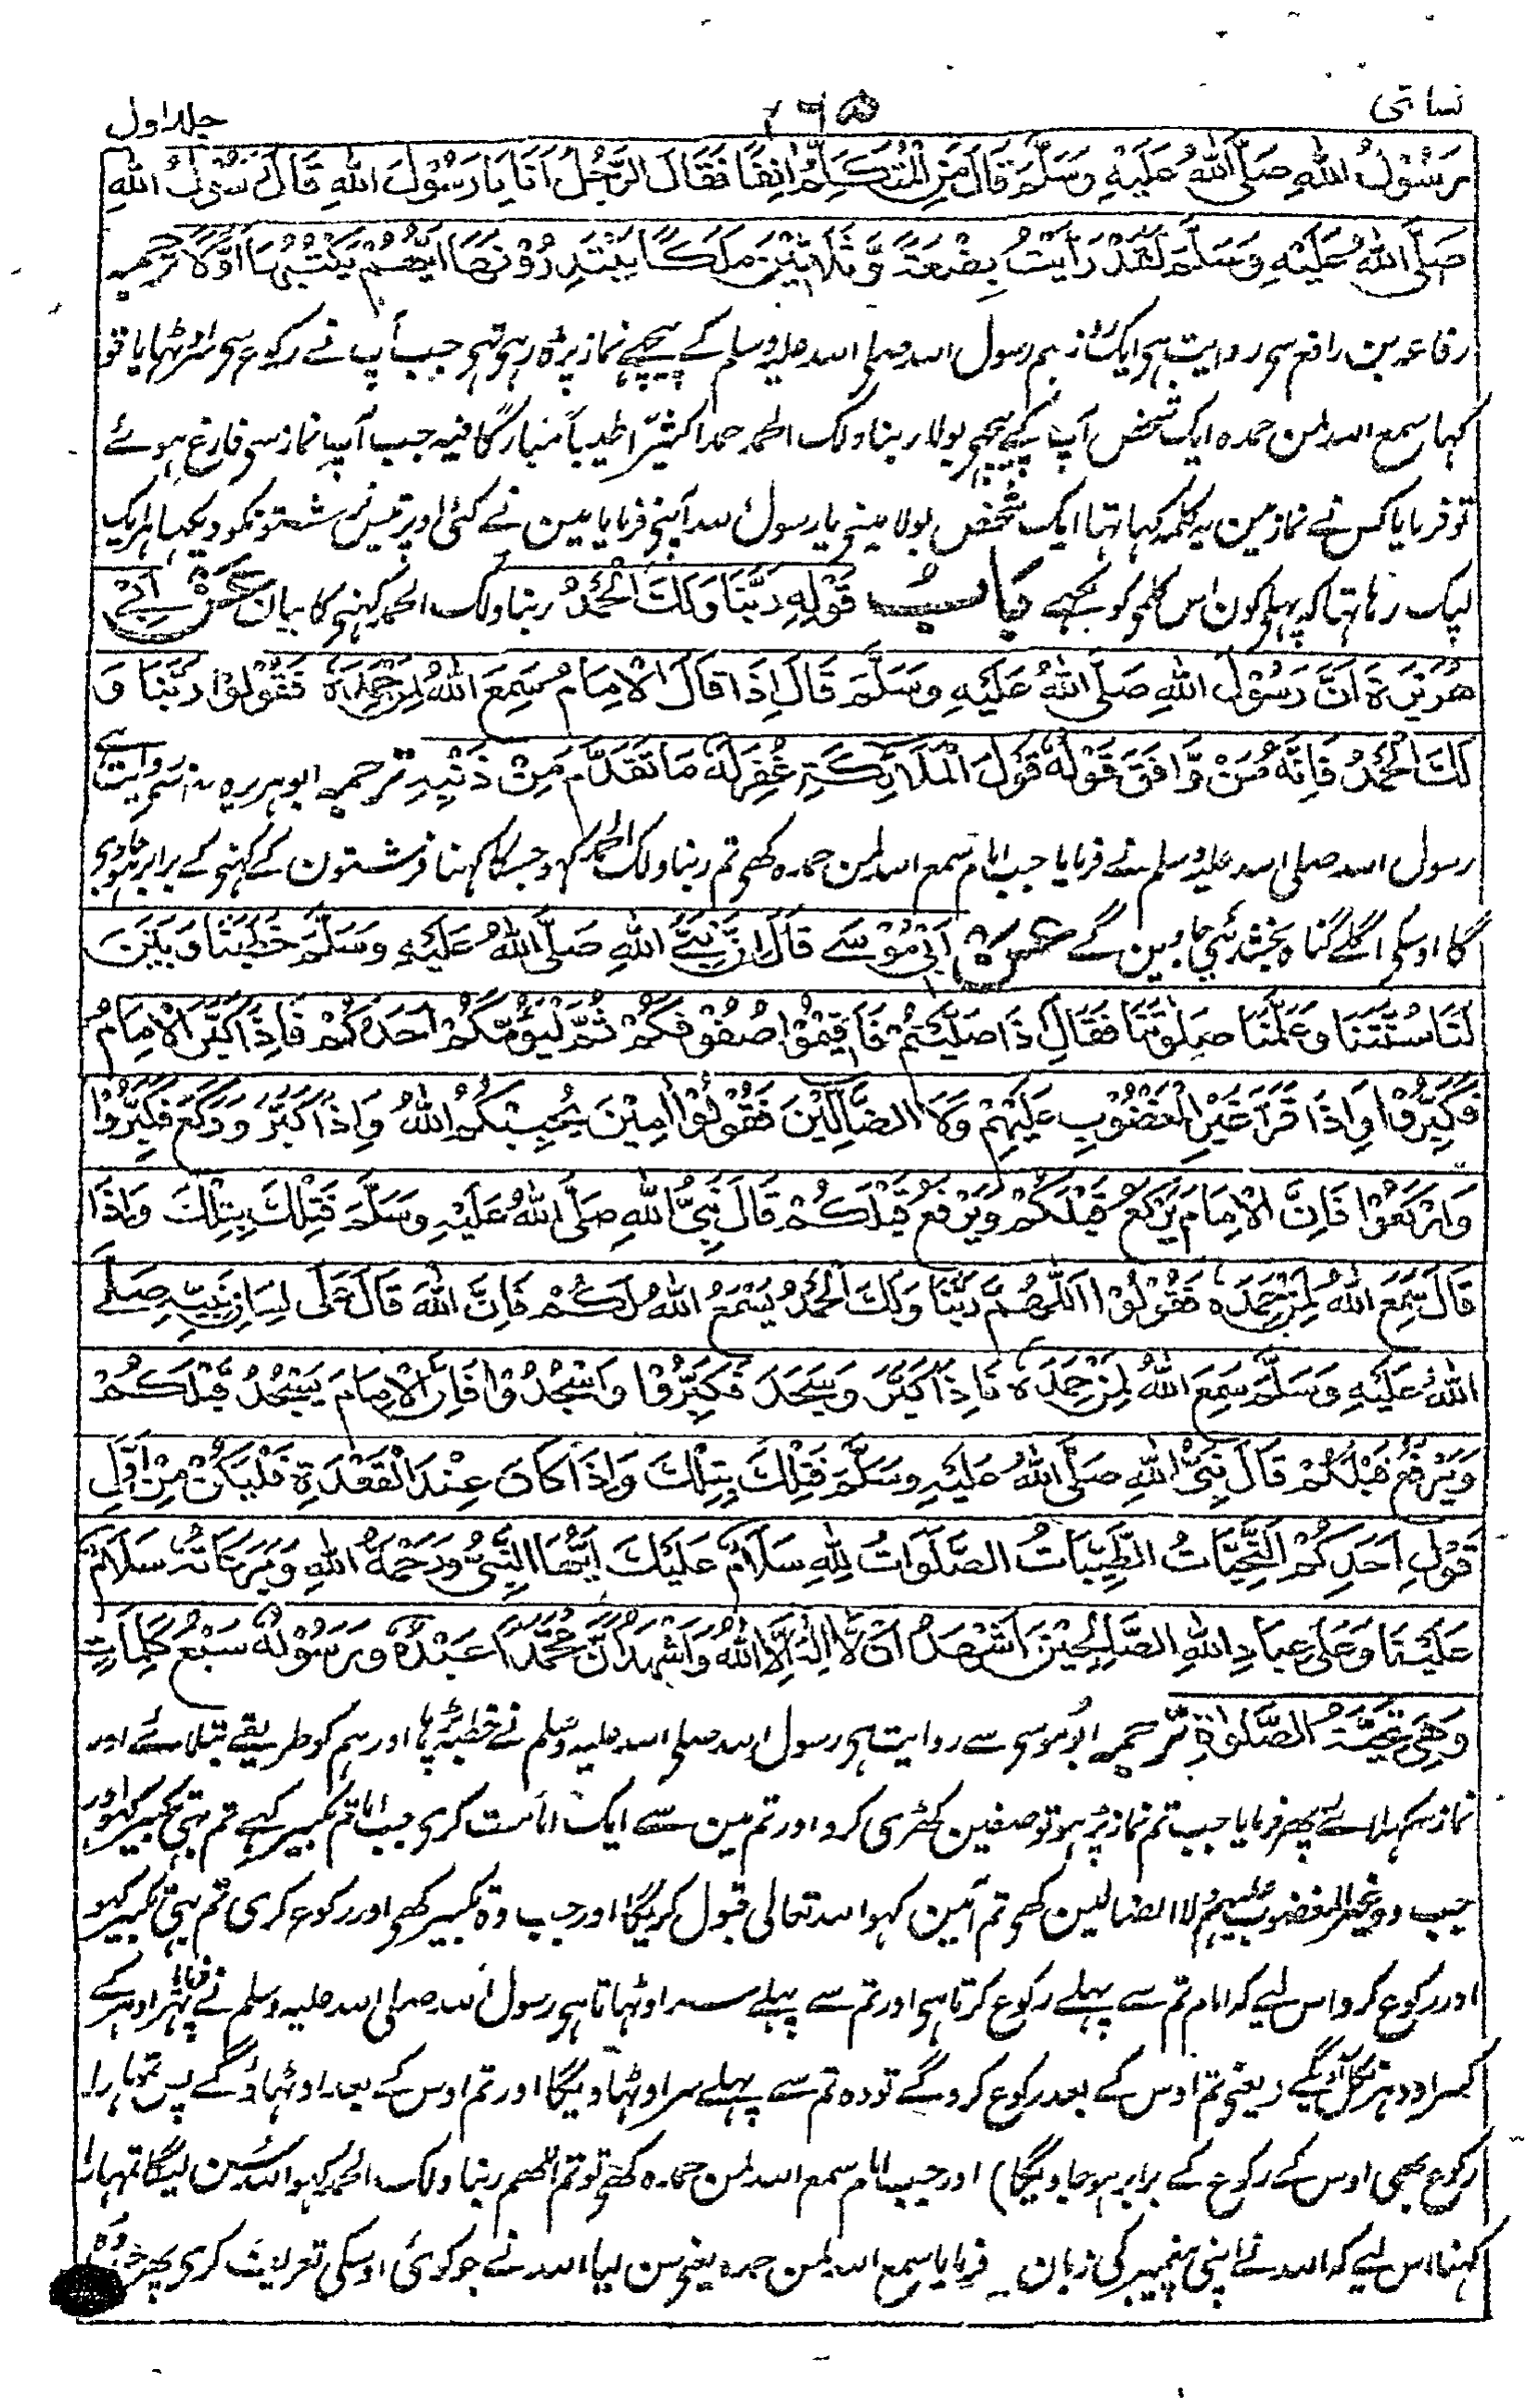 نسائی
جلد اول
رَسُوْلُ اللهِ صَلَّى اللهُ عَلَيْهِ وَسَلَّمَ قَالَ مَنِ الْمُتَكَلِّمُ اٰنِفًا فَقَالَ الرَّجُلُ اَنَا يَا رَسُوْلَ اللهِ قَالَ رَسُوْلُ اللهِ
صَلَّى اللهُ عَلَيْهِ وَسَلَّمَ لَقَدْ رَاَيْتُ بِضْعَةً وَّثَلَاثِيْنَ مَلَكًا يَبْتَدِرُوْنَهَا اَيُّهُمْ يَكْتُبُهَا اَوَّلًا ترجمہ
رفاعہ بن رافع سے روایت ہی ایک روز ہم رسول اللہ صلی اللہ علیہ وسلم کے پیچھے نماز پڑہ رہی تہی جب آپ نے رکوع سی سر اوٹھایا تو
کہا سمع اللہ لمن حمدہ ایک شخص آپ کے پیچہے بولا ربنا ولک الحمد حمداً کثیراً طیباً مبارکاً فیہ جب آپ نماز سی فارغ ہوئے
تو فرمایا کس نے نماز مین یہ کلمہ کہا تہا ایک شخص بولا مینے یا رسول اللہ آپنے فرمایا مین نے کئی اوپر تیس فرشتونکو دیکہا ہر ایک
لپک رہا تہا کہ پہلے کون اس کلمی کو لکھے بَابُ قَوْلِهِ رَبَّنَا وَلَكَ الْحَمْدُ ربنا ولک الحمد کہنے کا بیان عَنْ اَبِیْ
هُرَيْرَةَ اَنَّ رَسُوْلَ اللهِ صَلَّى اللهُ عَلَيْهِ وَسَلَّمَ قَالَ اِذَا قَالَ الْاِمَامُ سَمِعَ اللهُ لِمَنْ حَمِدَهٗ فَقُوْلُوْا رَبَّنَا وَ
لَكَ الْحَمْدُ فَاِنَّهٗ مَنْ وَّافَقَ قَوْلُهٗ قَوْلَ الْمَلَائِكَةِ غُفِرَ لَهٗ مَا تَقَدَّمَ مِنْ ذَنْبِهٖ ترجمہ ابو ہریرہ سے روایت ہے
رسول اللہ صلی اللہ علیہ وسلم نے فرمایا جب امام سمع اللہ لمن حمدہ کہی تم ربنا ولک الحمد کہو جسکا کہنا فرشتون کے کہنی کے برابر ہو جاوے
گا اوسکی اگلے گناہ بخشدئے جاوین گے عَنْ اَبِيْ مُوْسٰے قَالَ اِنَّ نَبِيَّ اللهِ صَلَّى اللهُ عَلَيْهِ وَسَلَّمَ خَطَبَنَا وَبَيَّنَ
لَنَا سُنَّتَنَا وَعَلَّمَنَا صَلٰوتَنَا فَقَالَ اِذَا صَلَّيْتُمْ فَاَقِيْمُوْا صُفُوْفَكُمْ ثُمَّ لْيَؤُمَّكُمْ اَحَدُكُمْ فَاِذَا كَبَّرَ الْاِمَامُ
فَكَبِّرُوْا وَاِذَا قَرَاَ غَيْرِ الْمَغْضُوْبِ عَلَيْهِمْ وَلَا الضَّالِّيْنَ فَقُوْلُوْا اٰمِيْنَ يُجِبْكُمُ اللهُ وَاِذَا كَبَّرَ وَرَكَعَ فَكَبِّرُوْا
وَارْكَعُوْا فَاِنَّ الْاِمَامَ يَرْكَعُ قَبْلَكُمْ وَيَرْفَعُ قَبْلَكُمْ قَالَ نَبِيُّ اللهِ صَلَّى اللهُ عَلَيْهِ وَسَلَّمَ فَتِلْكَ بِتِلْكَ وَاِذَا
قَالَ سَمِعَ اللهُ لِمَنْ حَمِدَهٗ فَقُوْلُوْا اَللّٰهُمَّ رَبَّنَا وَلَكَ الْحَمْدُ يَسْمَعُ اللهُ لَكُمْ فَاِنَّ اللهَ قَالَ عَلٰى لِسَانِ نَبِيِّهٖ صَلَّے
اللهُ عَلَيْهِ وَسَلَّمَ سَمِعَ اللهُ لِمَنْ حَمِدَهٗ فَاِذَا كَبَّرَ وَسَجَدَ فَكَبِّرُوْا وَاسْجُدُوْا فَاِنَّ الْاِمَامَ يَسْجُدُ قَبْلَكُمْ
وَيَرْفَعُ قَبْلَكُمْ قَالَ نَبِيُّ اللهِ صَلَّى اللهُ عَلَيْهِ وَسَلَّمَ فَتِلْكَ بِتِلْكَ وَاِذَا كَانَ عِنْدَ الْقَعْدَةِ فَلْيَكُنْ مِنْ اَوَّلِ
قَوْلِ اَحَدِكُمْ اَلتَّحِيَّاتُ الطَّيِّبَاتُ الصَّلَوَاتُ لِلّٰهِ سَلَامٌ عَلَيْكَ اَيُّهَا النَّبِيُّ وَرَحْمَةُ اللهِ وَبَرَكَاتُهٗ سَلَامٌ
عَلَيْنَا وَعَلٰى عِبَادِ اللهِ الصَّالِحِيْنَ اَشْهَدُ اَنْ لَّا اِلٰهَ اِلَّا اللهُ وَاَشْهَدُ اَنَّ مُحَمَّدًا عَبْدُهٗ وَرَسُوْلُهٗ سَبْعُ كَلِمَاتٍ
وَهِيَ تَحِيَّةُ الصَّلٰوةِ ترجمہ ابو موسی سے روایت ہی رسول اللہ صلی اللہ علیہ وسلم نے خطبہ پڑہا اور ہم کو طریقے بتلائے اور
نماز سکہلائے پھر فرمایا جب تم نماز پڑہو تو صفین کھڑی کرو اور تم مین سے ایک امامت کری جب امام تکبیر کہے تم بہی تکبیر کہو اور
جب وہ غیر المغضوب علیہم ولا الضالین کہی تم آمین کہو اللہ تعالی قبول کریگا اور جب وہ تکبیر کہی اور رکوع کری تم بہی تکبیر کہو
اور رکوع کرو اس لیے کہ امام تم سے پہلے رکوع کرتا ہی اور تم سے پہلے سر اوٹہاتا ہی رسول اللہ صلی اللہ علیہ وسلم نے فرمایا پہر ادہر کے
کسر اودہر نکل آویگے (یعنی تم اوس کے بعد رکوع کروگے تو وہ تم سے پہلے سر اوٹہاویگا اور تم اوس کے بعد اوٹہاؤگے پس تمہارا
رکوع بھی اوس کے رکوع کے برابر ہو جاویگا) اور جب امام سمع اللہ لمن حمدہ کہے تو تم اللہم ربنا ولک الحمد کہو اللہ سن لیگا تمہارا
کہنا اس لیے کہ اللہ نے اپنی پیغمبر کی زبان پر فرمایا سمع اللہ لمن حمدہ یعنی سن لیا اللہ نے جو کوئی اوسکی تعریف کری پھر جب وہ